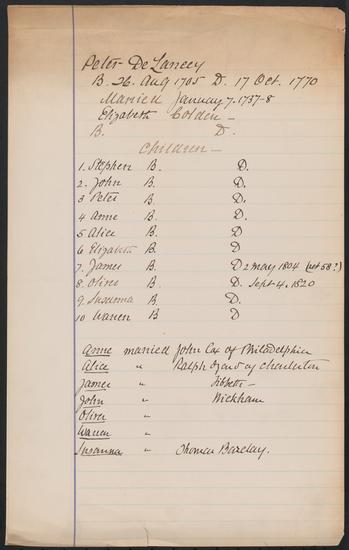 Peter De Lancey
B. 26. Aug 1705 D. 17 Oct. 1770
Married January 7. 1737-8
Elizabeth Colden -
B. D.
Children -
1. Stephen B. D.
2. John B. D.
3 Peter B. D.
4 Anne B. D.
5 Alice B. D
6 Elizabeth B. D
7. James B. D 2 May 1804 (aet 58?)
8. Oliver B. D. Sept 4. 1820
9. Susanna B. D.
10 Warren B. D
Anne married John Cox of Philadelphia
Alice " Ralph Izard of Charleston
James " Tibbetts -
John " Wickham
Oliver "
Warren "
Susanna " Thomas Barclay.